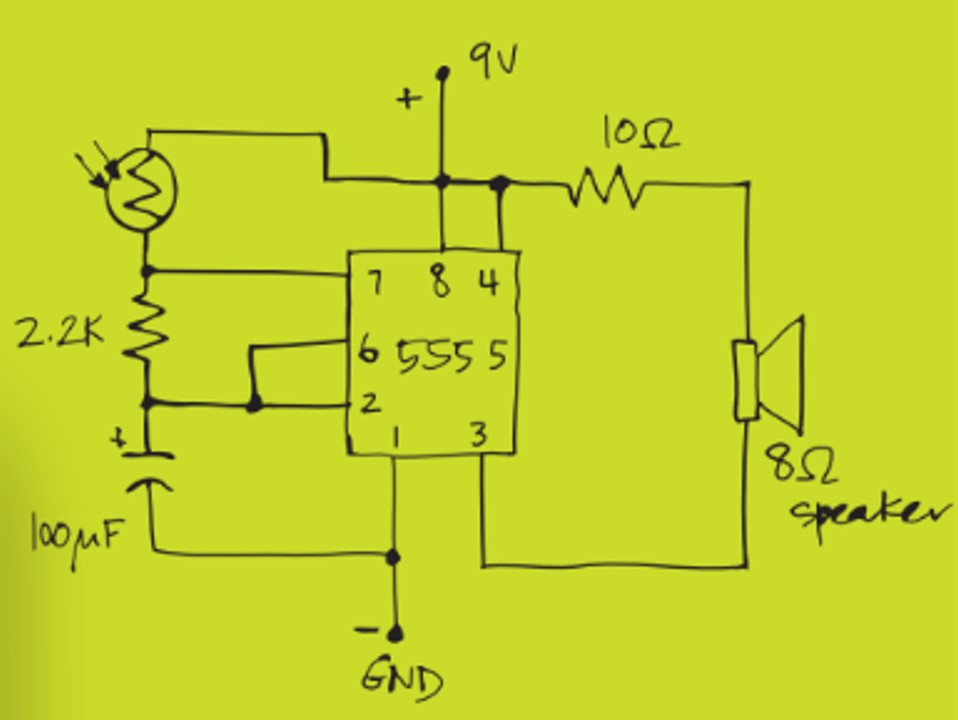 9V
+
10Ω
7 8 4
2.2K
6 555 5
2
+
1 3
8Ω
speaker
100µF
-
GND